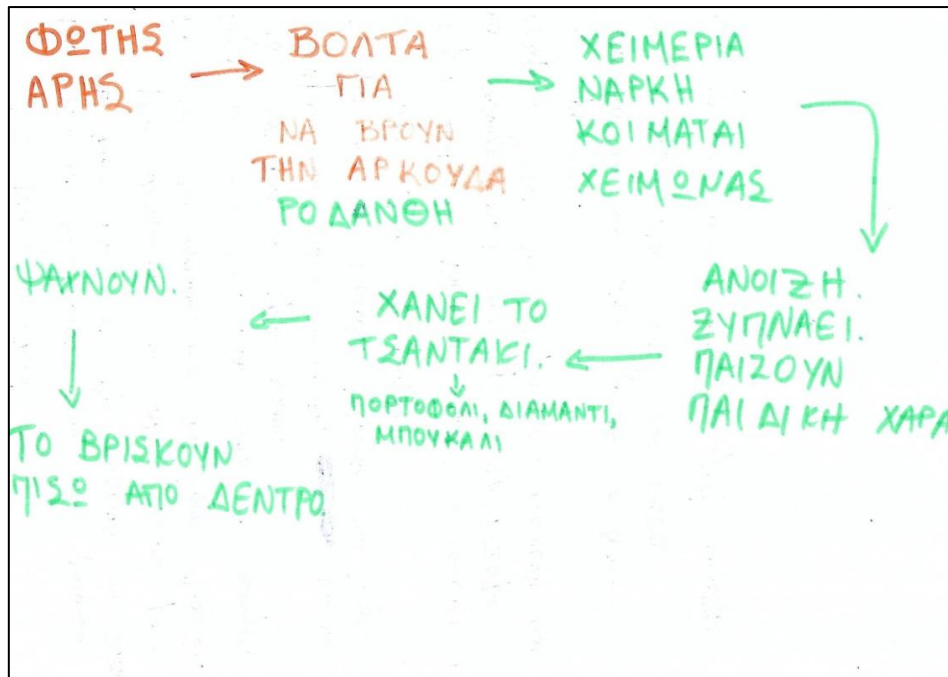 ΦΩΤΗΣ
ΑΡΗΣ
ΒΟΛΤΑ
ΓΙΑ
ΝΑ ΒΡΟΥΝ
ΤΗΝ ΑΡΚΟΥΔΑ
ΡΟΔΑΝΘΗ
ΧΕΙΜΕΡΙΑ
ΝΑΡΚΗ
ΚΟΙΜΑΤΑΙ
ΧΕΙΜΩΝΑΣ
ΑΝΟΙΞΗ.
ΞΥΠΝΑΕΙ.
ΠΑΙΖΟΥΝ
ΠΑΙΔΙΚΗ ΧΑΡΑ
ΧΑΝΕΙ ΤΟ
ΤΣΑΝΤΑΚΙ.
ΠΟΡΤΟΦΟΛΙ, ΔΙΑΜΑΝΤΙ,
ΜΠΟΥΚΑΛΙ
ΨΑΧΝΟΥΝ.
ΤΟ ΒΡΙΣΚΟΥΝ
ΠΙΣΩ ΑΠΟ ΔΕΝΤΡΟ.